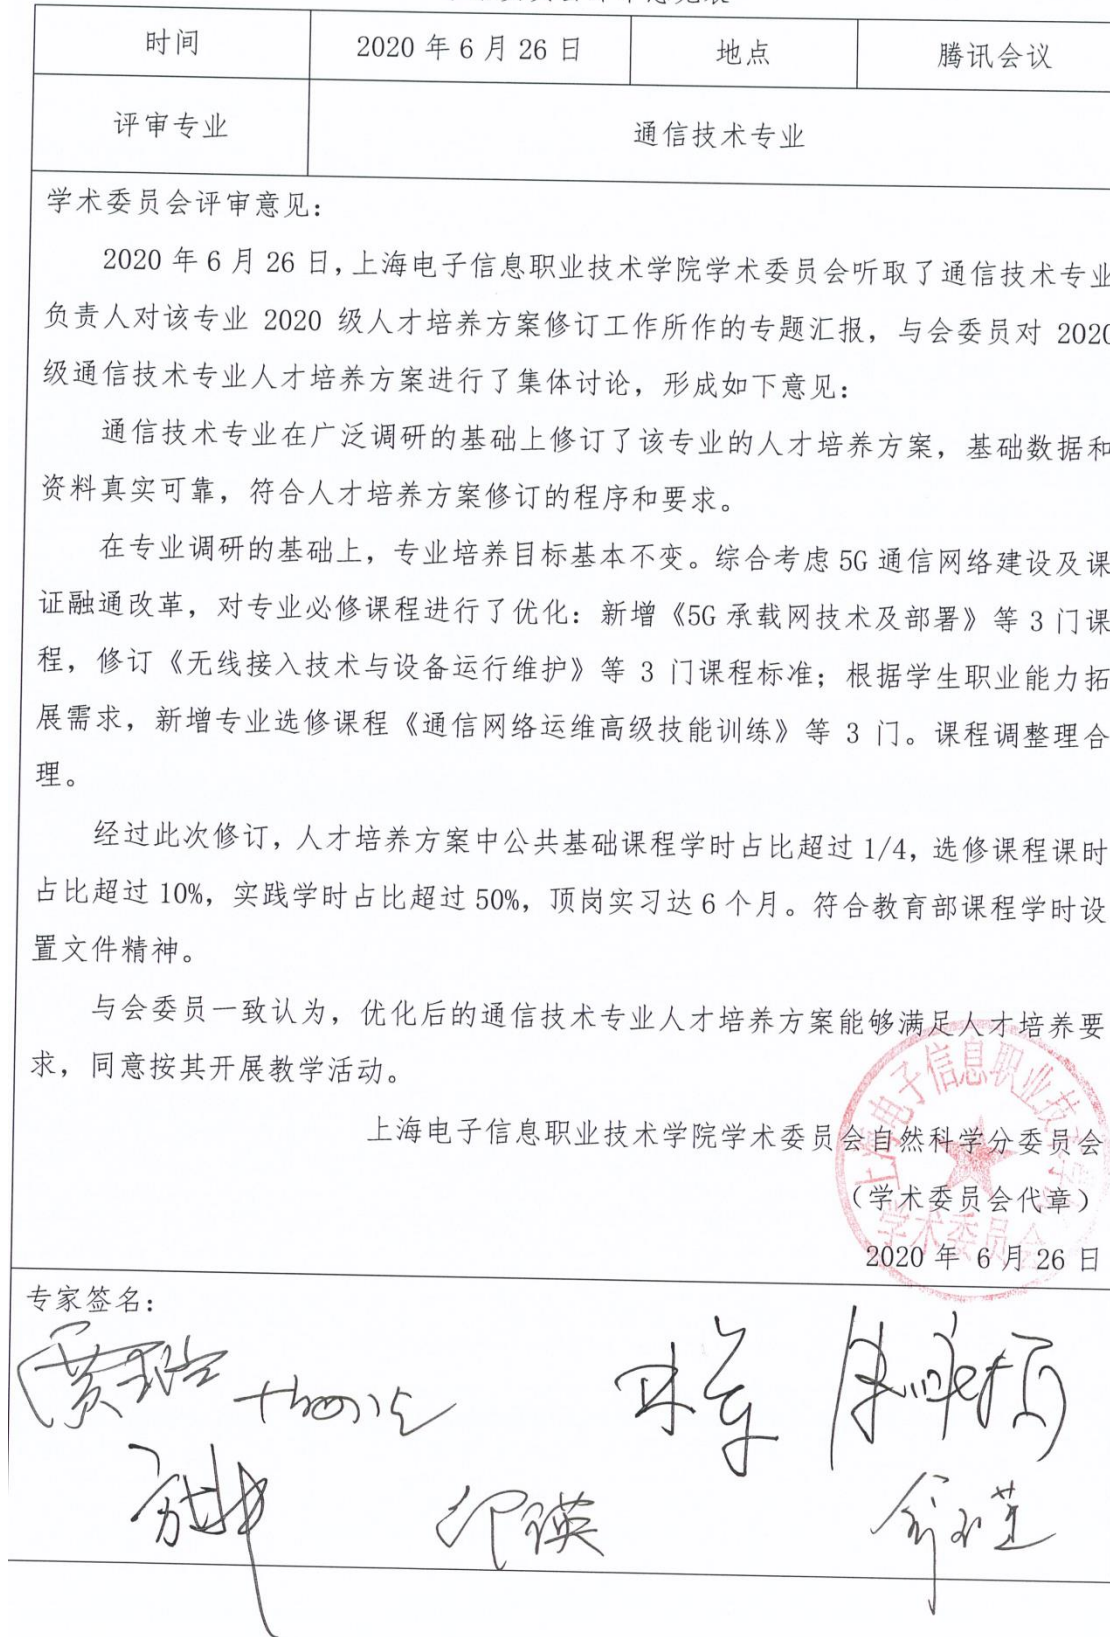 时间 2020 年 6 月 26 日 地点 腾讯会议
评审专业 通信技术专业
学术委员会评审意见：
2020 年 6 月 26 日，上海电子信息职业技术学院学术委员会听取了通信技术专业
负责人对该专业 2020 级人才培养方案修订工作所作的专题汇报，与会委员对 2020
级通信技术专业人才培养方案进行了集体讨论，形成如下意见：
通信技术专业在广泛调研的基础上修订了该专业的人才培养方案，基础数据和
资料真实可靠，符合人才培养方案修订的程序和要求。
在专业调研的基础上，专业培养目标基本不变。综合考虑 5G 通信网络建设及课
证融通改革，对专业必修课程进行了优化：新增《5G 承载网技术及部署》等 3 门课
程，修订《无线接入技术与设备运行维护》等 3 门课程标准；根据学生职业能力拓
展需求，新增专业选修课程《通信网络运维高级技能训练》等 3 门。课程调整理合
理。
经过此次修订，人才培养方案中公共基础课程学时占比超过 1/4，选修课程课时
占比超过 10%，实践学时占比超过 50%，顶岗实习达 6 个月。符合教育部课程学时设
置文件精神。
与会委员一致认为，优化后的通信技术专业人才培养方案能够满足人才培养要
求，同意按其开展教学活动。
上海电子信息职业技术学院学术委员会自然科学分委员会
（学术委员会代章）
2020 年 6 月 26 日
上海电子信息职业技术学院
学术委员会
专家签名：